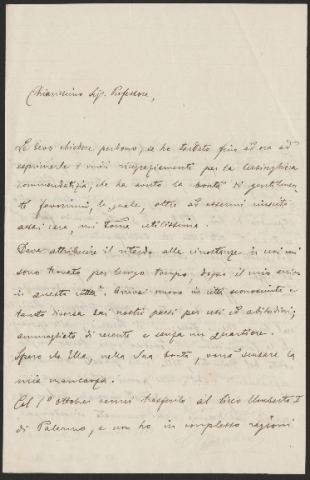 Chiarissimo Sig. Professore,
Le devo chiedere perdono, se ho tardato fin ad ora ad
esprimerle i miei ringraziamenti per la lusinghiera
commendatizia, che ha avuto la bontà di gentilmen-
te favorirmi, la quale, oltre ad essermi riuscita
assai cara, mi torna utilissima.
Deve attribuire il ritardo alle circostanze in cui mi
sono trovato per lungo tempo, dopo il mio arrivo
in questa città. Arrivai nuovo in città sconosciuta e
tanto diversa dai nostri paesi per usi ed abitudini;
ammogliato di recente e senza un quartiere.
Spero che Ella, nella Sua bontà, vorrà scusare la
mia mancanza.
Col 1º ottobre venni trasferito al Liceo Umberto I
di Palermo, e non ho in complesso ragioni